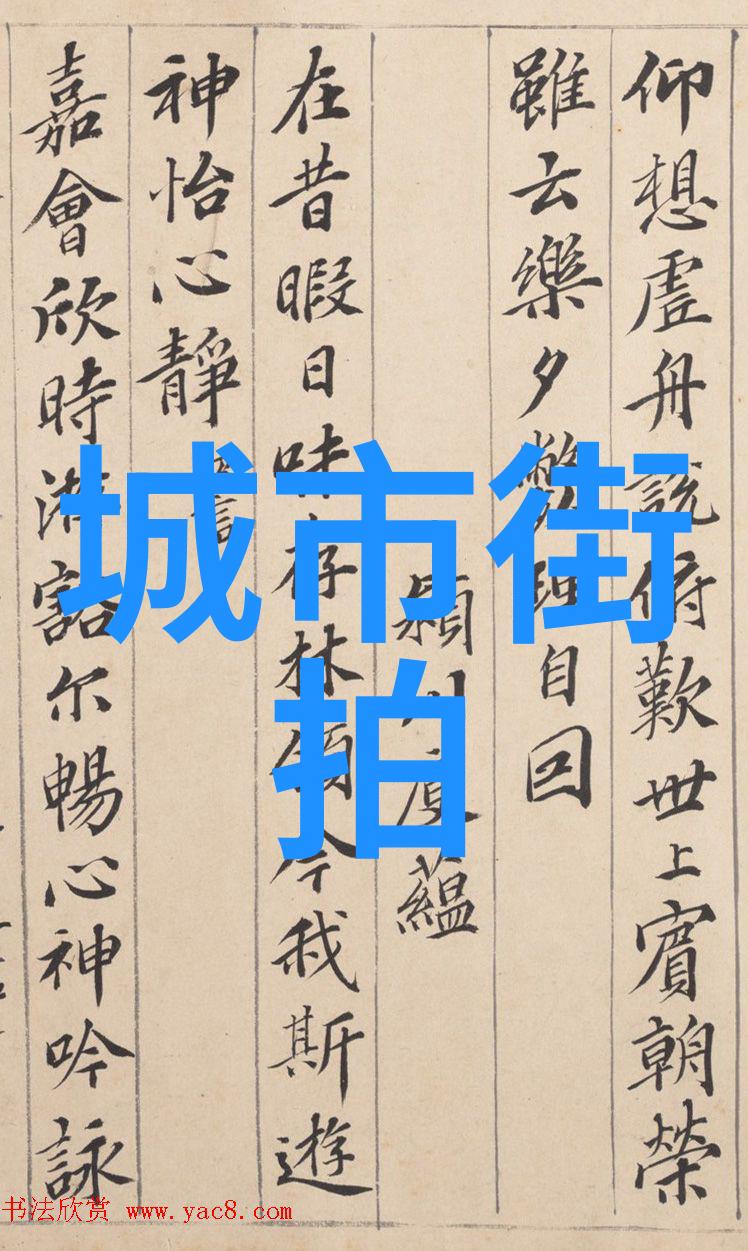 仰想虛舟説俯歎世上賓朝榮
雖云樂夕自回
潁川蘊
在昔暇日味存林領今我斯遊
神怡心靜
嘉會欣時游豁尔暢心神吟詠
城市街
拍
书法欣赏 www.yac8.com